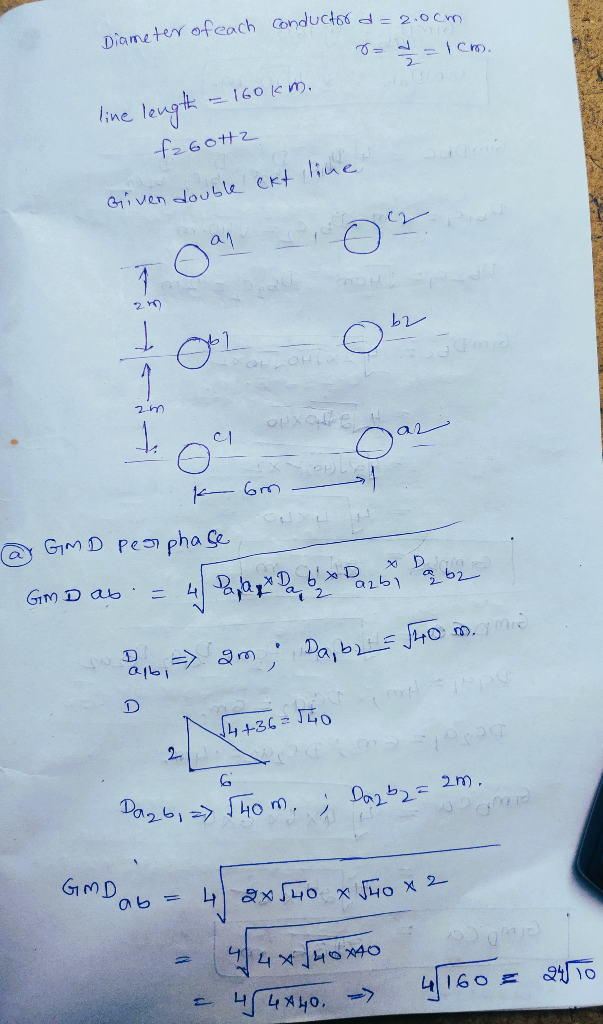 Diameter of each conductor d = 2.0cm
r = d/2 = 1cm.
line length = 160km.
f=60Hz
Given double ckt line
a1 c2
2m
b1 b2
2m
c1 a2
6m
(a) GMD per phase
GMD ab = 4√ Da1a1 × Da1b2 × Da2b1 × Da2b2
Da1b1 => 2m ; Da1b2 = √40 m.
D
√4+36 = √40
2
6
Da2b1 => √40 m. ; Da2b2 = 2m.
GMDab = 4√ 2×√40 × √40 × 2
= 4√ 4 × √40×40
= 4√ 4×40. => 4√160 = 2 4√10